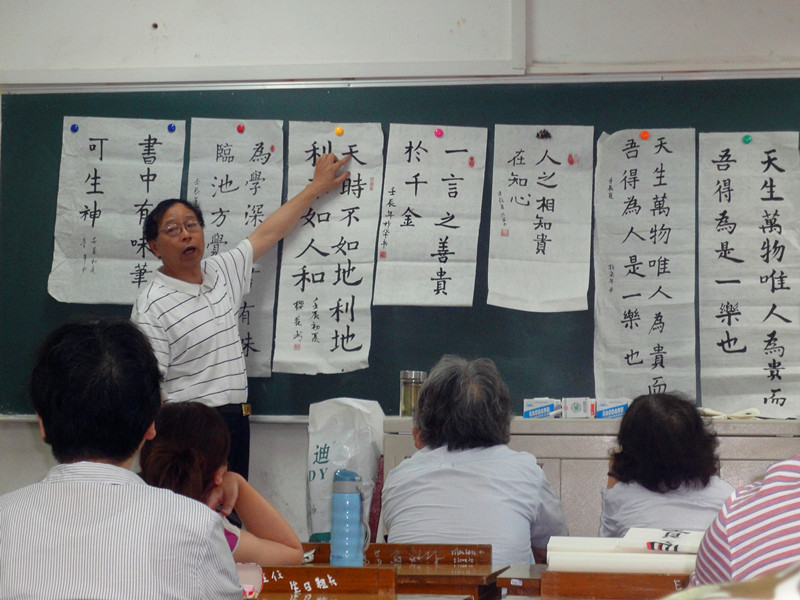 書中有味筆
可生神
為學深
有味
臨池方覺
天時不如地利地
利不如人和
壬辰初夏
一言之善貴
於千金
壬辰年
人之相知貴
在知心
天生萬物唯人為貴而
吾得為人是一樂也
天生萬物唯人為貴而
吾得為是一樂也
迪
DY